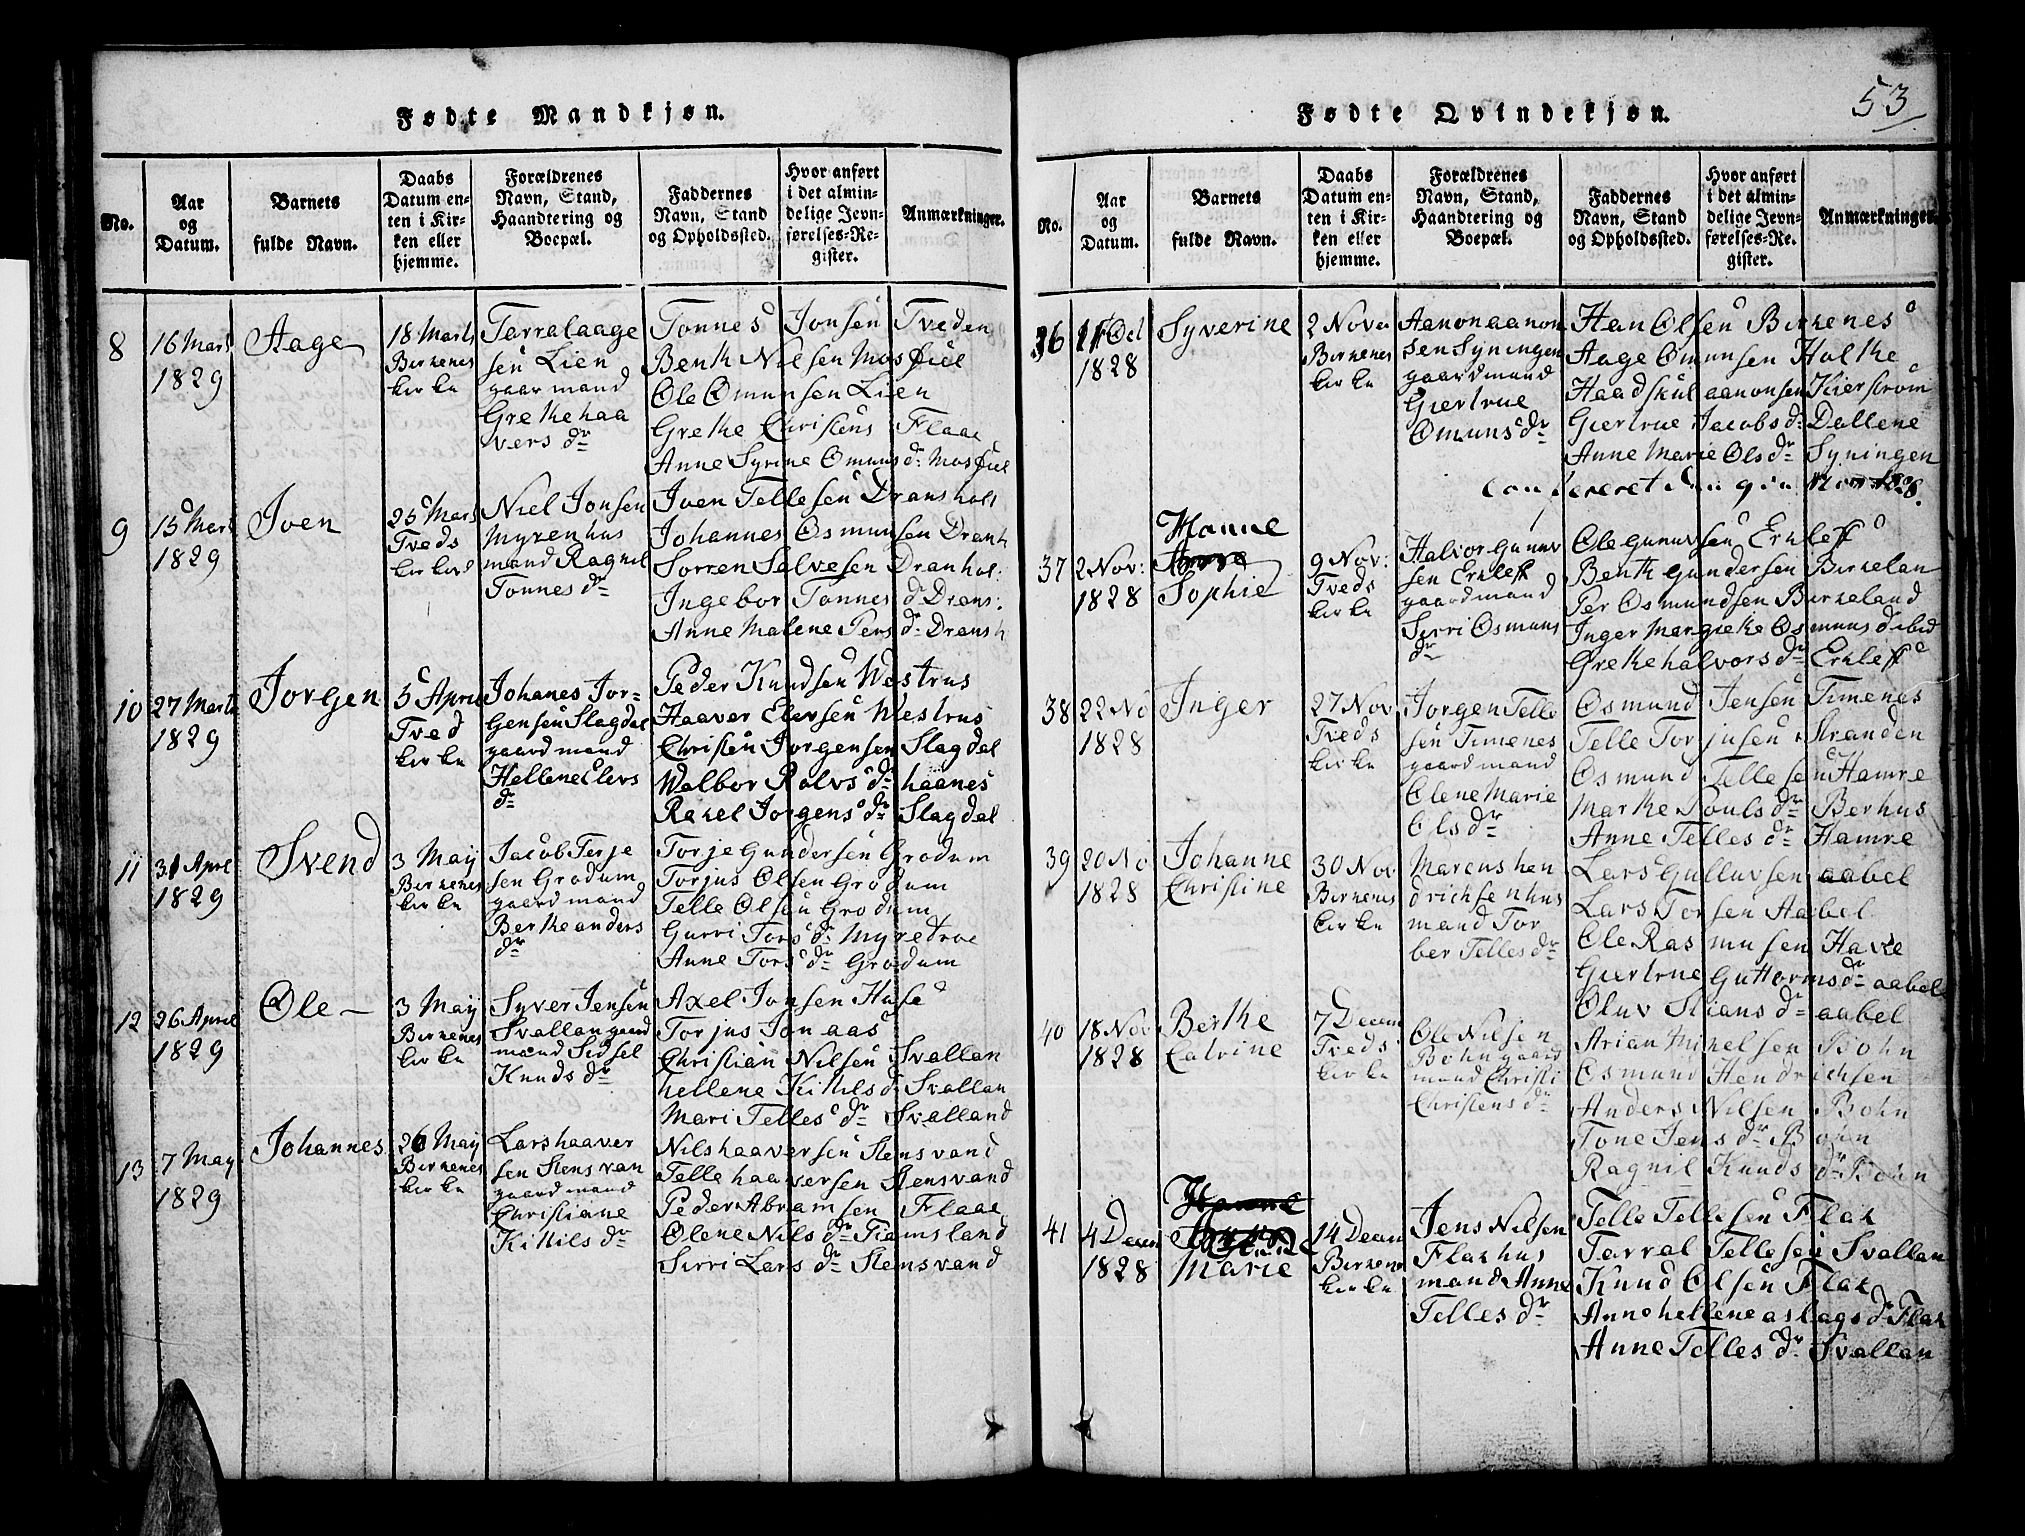 Fødte Mandkjøn.
No.
Aar
og
Datum.
Barnets
fulde Navn.
Daabs
Datum en-
ten i Kir-
ken eller
hjemme.
Forældrenes
Navn, Stand,
Haandtering og
Boepæl.
Faddernes
Navn, Stand
og Opholdssted.
Hvor anført
i det almin-
delige Jevn-
førelses-Re-
gister.
Anmærkninger.
8
16 Mars
1829
Aage
18 Marts
Birkenes
kirke
Tarral aage
sen Lien
gaarmand
Grethe haa
vers dr
Tønnes Jonsen Tveden
Benth Nilsen Mosfiel
Ole Omunsen Lien
Grethe Christens Flaae
Anne Syrine Omuns dr Mosfiel
9
15 Mars
1829
Iven
25 Mars
Tveds
kirke
Niel Jonsen
Myren hus
mand Ragnil
Tonnes dr
Iven Tellesen Dransholt
Johannes Osmunsen Dranh
Sorren Salvesen Dranhol:
Ingebor Tonnes dr Drans:
Anne Malene Pers dr Dransh
10
27 Marts
1829
Jorgen
5 April
Tved
kirke
Johanes Jor-
gensen Slagdal
gaardmand
Hellene Elers
dr
Peder Knudsen Westrus
Haaver Elersen Westrus
Christen Jorgensen Slagdal
Walbor Rolvs dr haanes
Rakel Jorgens dr Slagdal
11
31 April
1829
Svend
3 May
Birkenes
kirke
Jacob Terje
sen Grodum
gaardmand
Berthe anders
dr
Torje Gundersen Grodum
Torjus Olsen Grodum
Telle Olsen Grodum
Gurri Tors dr Myretroe
Anne Tors dr Grodum
12
26 April
1829
Ole
3 May
Birkenes
kirke
Syver Jensen
Svallan gaard
mand Sidsel
Knuds dr
Axel Jonsen Huse
Torjus Jon aas
Christian Nilsen Svallan
hellene Kittils dr Svallan
Mari Telles dr Svalland
13
7 May
1829
Johannes
26 May
Birkenes
kirke
Lars haaver
sen Stensvan
gaardmand
Christiane
Kittils dr
Nils haaversen Stensvand
Telle haaversen Stensvand
Peder Abramsen Flaae
Olene Nils dr Tiamsland
Sirri Lars dr Stensvand
Fødte Qvindekjøn.
53
No.
Aar
og
Datum.
Barnets
fulde Navn.
Daabs
Datum en-
ten i Kir-
ken eller
hjemme.
Forældrenes
Navn, Stand,
Haandtering og
Boepæl.
Faddernes
Navn, Stand
og Opholdssted.
Hvor anført
i det almin-
delige Jevn-
førelses-Re-
gister.
Anmærkninger.
36
1828
Syverine
2 Nove
Birkenes
kirke
Aanon aanon
sen Syningen
gaardmand
Giertrue
Omuns dr
Han Olsen Birkenes
Aage Omunsen Holthe
Haadskul aanonsen Kierstrøm
Giertrue Jacobs dr Dollene
Anne Marie Ols dr Syningen
37
2 Nov:
1828
Hanne
Sophie
9 Nov:
Tveds
kirke
Halvor Gunuv
sen Erkleff
gaardmand
Sirri Osmuns
dr
Ole Gunuvsen Erkleff
Benth Gundersen Birkelan
Per Osmundsen Birkeland
Inger Margiethe Osmuns dr ibid
Grethe halvors dr Erkleff
38
22 No
1828
Inger
27 Nov
Tveds
kirke
Jorgen Telle
sen Timenes
gaardmand
Olene Marie
Ols dr
Osmund Jensen Timenes
Telle Torjusen Stranden
Osmund Tellesen Hamre
Marthe Pouls dr Berhus
Anne Telles dr Hamre
39
20 No
1828
Johanne
Christine
30 Nov
Birkenes
kirke
Marcus hen
drichsen hus
mand Tor
ber Telles dr
Lars Gulluvsen aabel
Lars Torsen Aabel
Ole Rasmusen Havre
Giertrue Guttorms dr aabel
Oluv Stians dr aabel
40
18 Nov
1828
Berthe
Catrine
7 Decem
Tveds
kirke
Ole Nilsen
Bohn gaard
mand Christi
Christens dr
Arian Mikelsen Bohn
Osmund Hendrichsen
Anders Nilsen Bohn
Tone Jens dr Boun
Ragnil Knuds dr Boun
41
4 Decem
1828
Marie
14 Decem
Birkenes
kirke
Jens Nilsen
Flak hus
mand Anne
Telles dr
Telle Tellesen Flak
Tarral Tellesen Svallan
Knud Olsen Flak
Anne hellene aslags dr Flak
Anne Telles dr Svallan